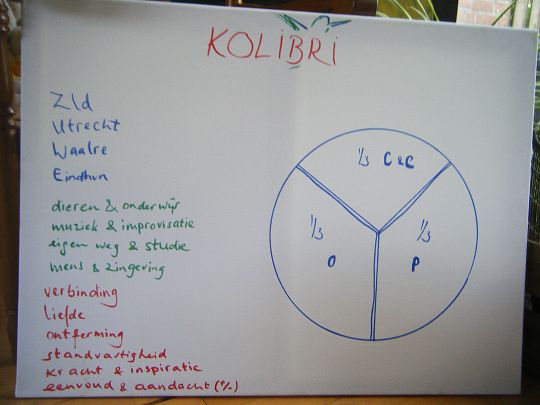 KOLIBRI
Zld
Utrecht
Waalre
Eindhvn
dieren & onderwijs
muziek & improvisatie
eigen weg & studie
mens & zingeving
verbinding
liefde
ontferming
standvastigheid
kracht & inspiratie
eenvoud & aandacht (+/-)
1/3 C & C
1/3 O
1/3 P